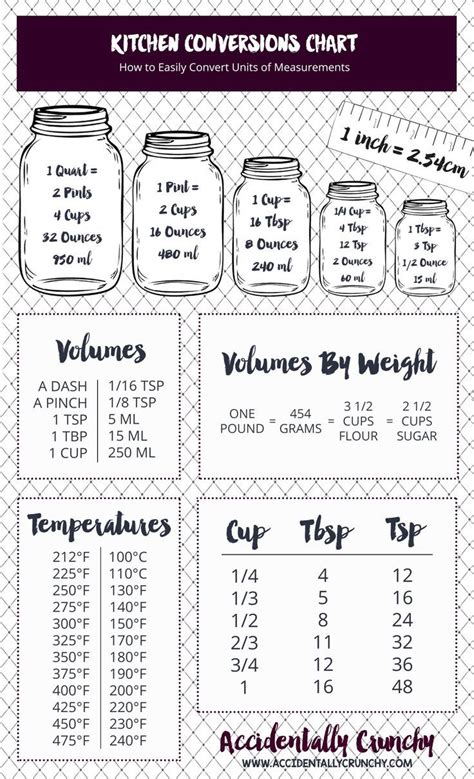 KITCHEN CONVERSIONS CHART
How to Easily Convert Units of Measurements
1 inch = 2.54cm
1 Quart =
2 Pints
4 Cups
32 Ounces
950 ml
1 Pint =
2 Cups
16 Ounces
480 ml
1 Cup =
16 Tbsp
8 Ounces
240 ml
1/4 Cup =
4 Tbsp
12 Tsp
2 Ounces
60 ml
1 Tbsp =
3 Tsp
1/2 Ounce
15 ml
Volumes
A DASH 1/16 TSP
A PINCH 1/8 TSP
1 TSP 5 ML
1 TBP 15 ML
1 CUP 250 ML
Volumes By Weight
ONE POUND = 454 GRAMS = 3 1/2 CUPS FLOUR = 2 1/2 CUPS SUGAR
Temperatures
212°F 100°C
225°F 110°C
250°F 130°C
275°F 140°C
300°F 150°C
325°F 160°C
350°F 180°C
375°F 190°C
400°F 200°C
425°F 220°C
450°F 230°C
475°F 240°C
Cup Tbsp Tsp
1/4 4 12
1/3 5 16
1/2 8 24
2/3 11 32
3/4 12 36
1 16 48
Accidentally Crunchy
WWW.ACCIDENTALLYCRUNCHY.COM